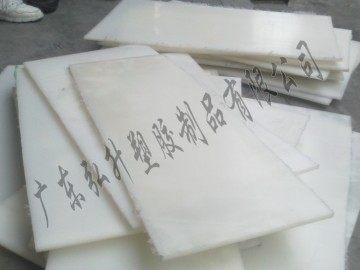 广东弘升塑胶制品有限公司